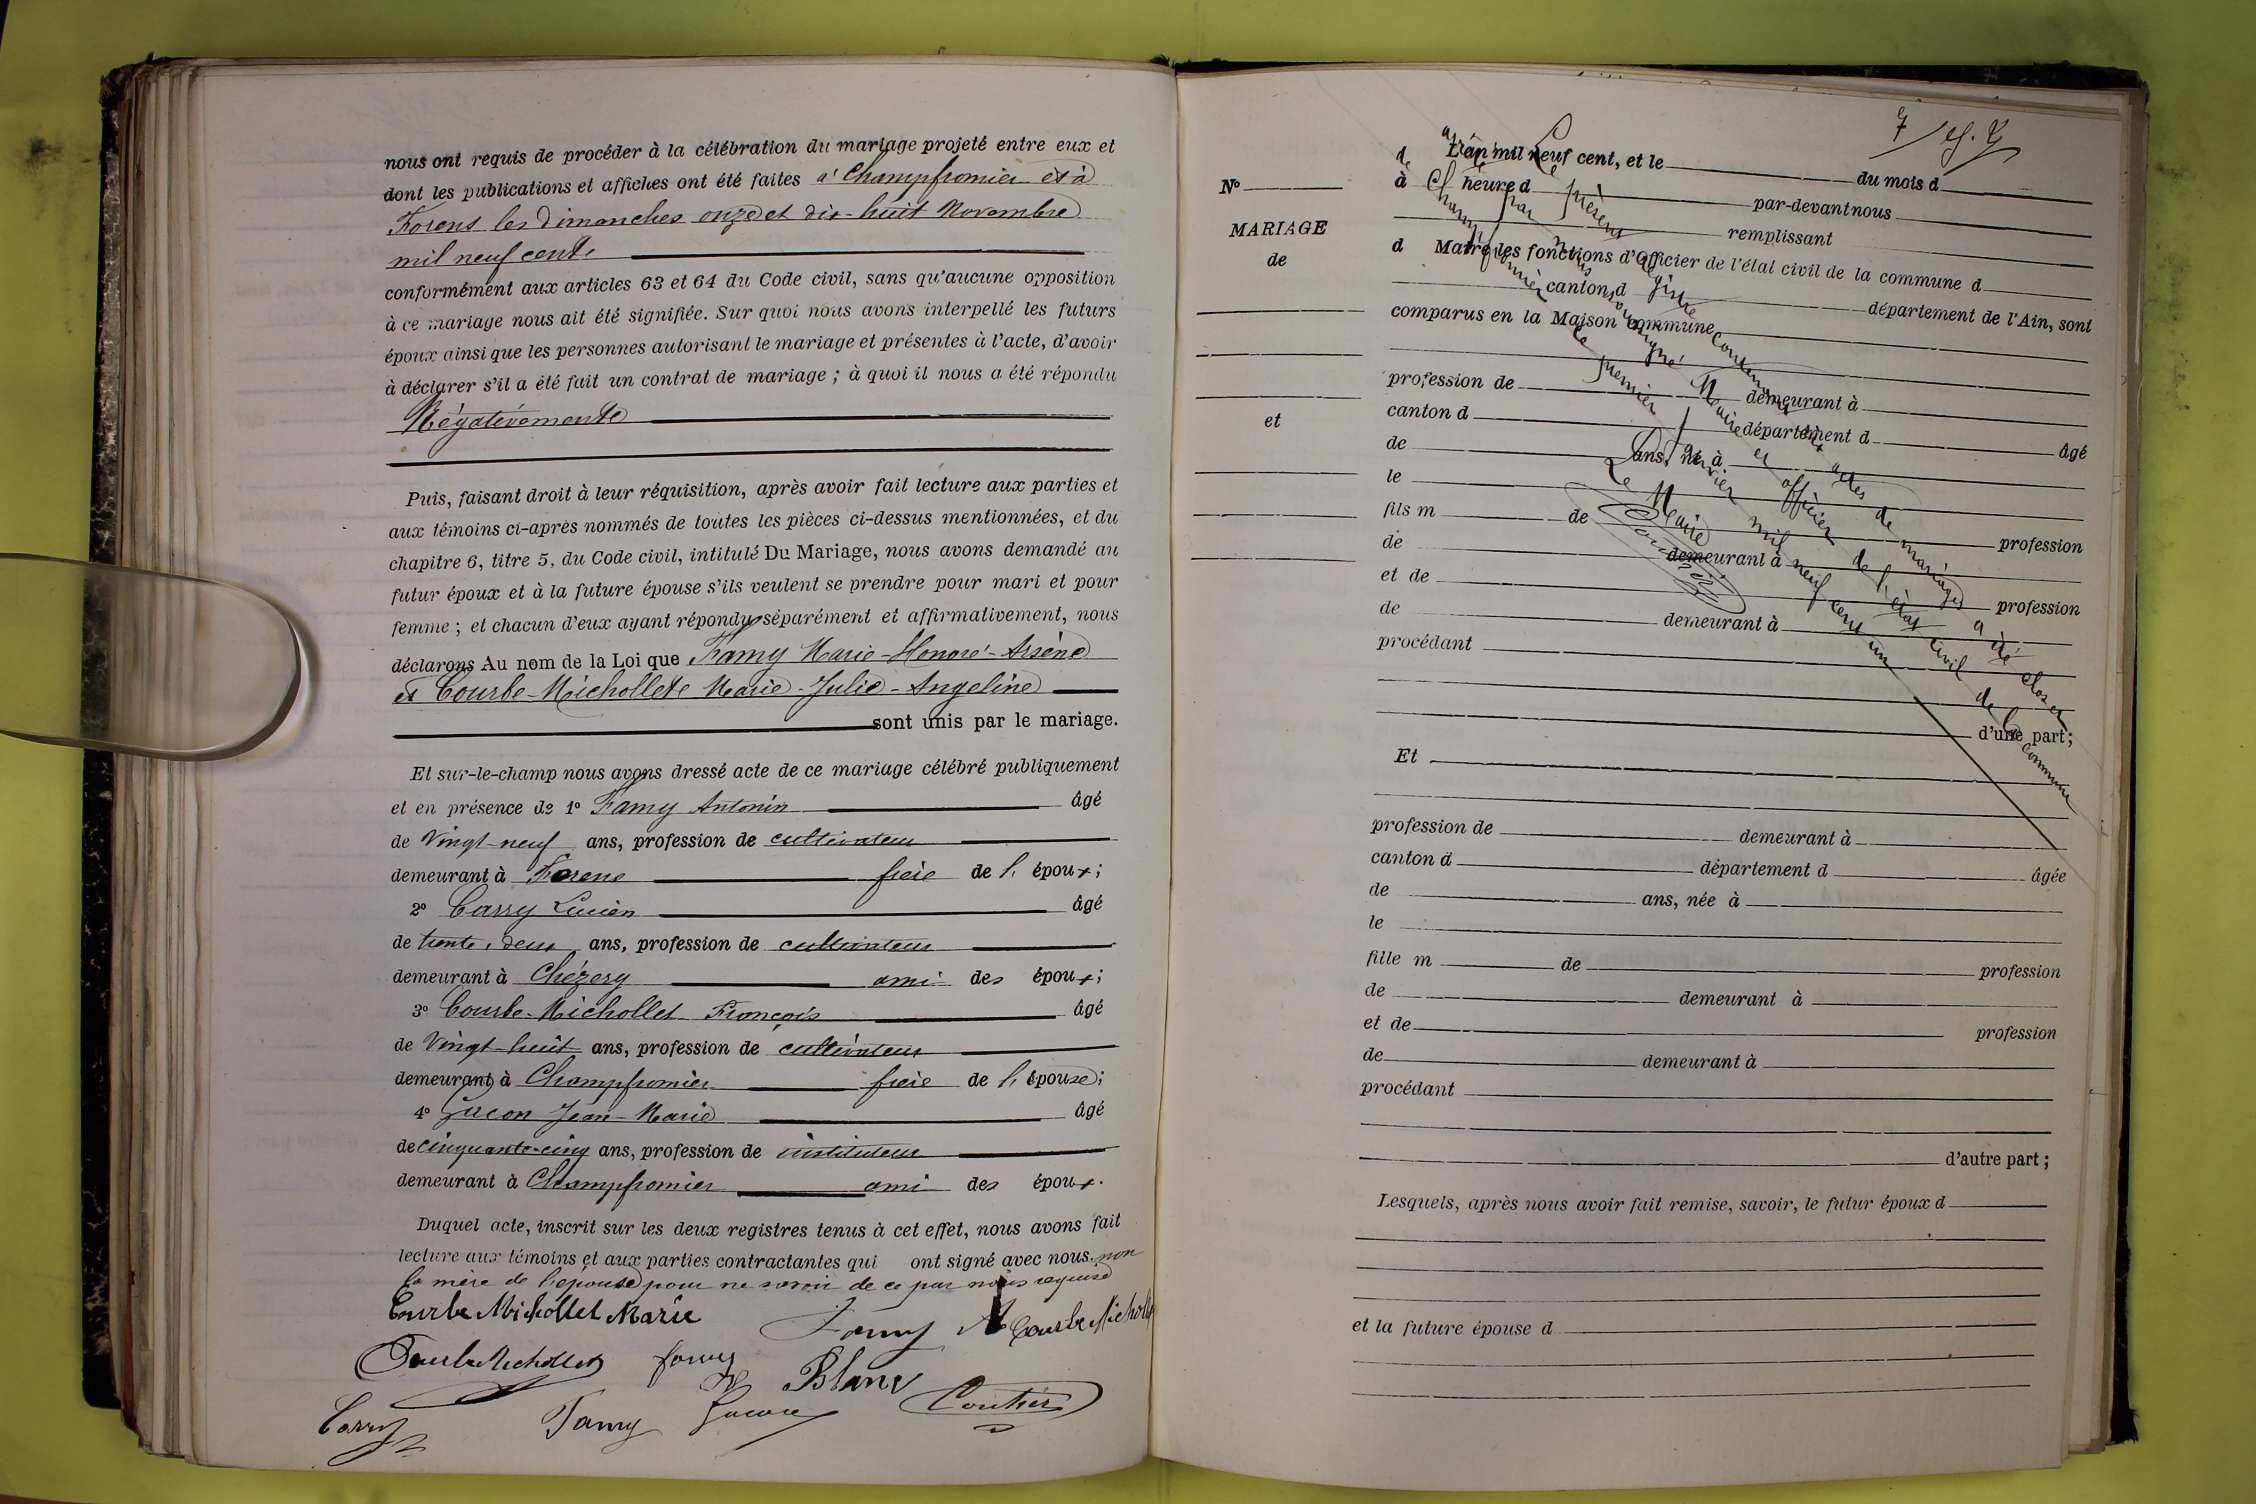 nous ont requis de procéder à la célébration du mariage projeté entre eux et
dont les publications et affiches ont été faites à Champfromier et à
Forens les Dimanches onze et dix-huit Novembre
mil neuf cent
conformément aux articles 63 et 64 du Code civil, sans qu'aucune opposition
à ce mariage nous ait été signifiée. Sur quoi nous avons interpellé les futurs
époux ainsi que les personnes autorisant le mariage et présentes à l'acte, d'avoir
à déclarer s'il a été fait un contrat de mariage ; à quoi il nous a été répondu
Négativement
Puis, faisant droit à leur réquisition, après avoir fait lecture aux parties et
aux témoins ci-après nommés de toutes les pièces ci-dessus mentionnées, et du
chapitre 6, titre 5, du Code civil, intitulé Du Mariage, nous avons demandé au
futur époux et à la future épouse s'ils veulent se prendre pour mari et pour
femme ; et chacun d'eux ayant répondu séparément et affirmativement, nous
déclarons Au nom de la Loi que Famy Marie-Honoré-Arsène
et Courbe-Michollet Marie-Julie-Angeline
sont unis par le mariage.
Et sur-le-champ nous avons dressé acte de ce mariage célébré publiquement
et en présence de 1° Famy Antonin âgé
de Vingt-neuf ans, profession de cultivateur
demeurant à Forens frère de l' époux ;
2° Carry Lucien âgé
de trente-deux ans, profession de cultivateur
demeurant à Chézery ami des époux ;
3° Courbe-Michollet François âgé
de Vingt-huit ans, profession de cultivateur
demeurant à Champfromier frère de l' épouse ;
4° Jean-Marie âgé
de cinquante-cinq ans, profession de instituteur
demeurant à Champfromier ami des époux.
Duquel acte, inscrit sur les deux registres tenus à cet effet, nous avons fait
lecture aux témoins et aux parties contractantes qui ont signé avec nous. non
la mère de l'épouse pour ne savoir de ce par nous requise
Courbe Michollet Marie Famy A Courbe Michollet
Courbe Michollet Famy Blanc
Carry Famy Coutier
N°
MARIAGE
de
et
7
L'an mil neuf cent, et le du mois d
à heure d par-devant nous
remplissant
d Maire les fonctions d'Officier de l'état civil de la commune d
canton d département de l'Ain, sont
comparus en la Maison commune
profession de demeurant à
canton d département d âgé
de ans, né à
le
fils m de profession
de demeurant à
et de profession
de demeurant à
procédant
d'une part ;
Et
profession de demeurant à
canton d département d âgée
de ans, née à
le
fille m de profession
de demeurant à
et de profession
de demeurant à
procédant
d'autre part ;
Lesquels, après nous avoir fait remise, savoir, le futur époux d
et la future épouse d
Le présent registre contenant actes de mariages a été clos et
arrêté par nous soussigné Maire et officier de l'état civil de la commune
de Champfromier le premier Janvier mil neuf cent un
Le Maire
Coutier